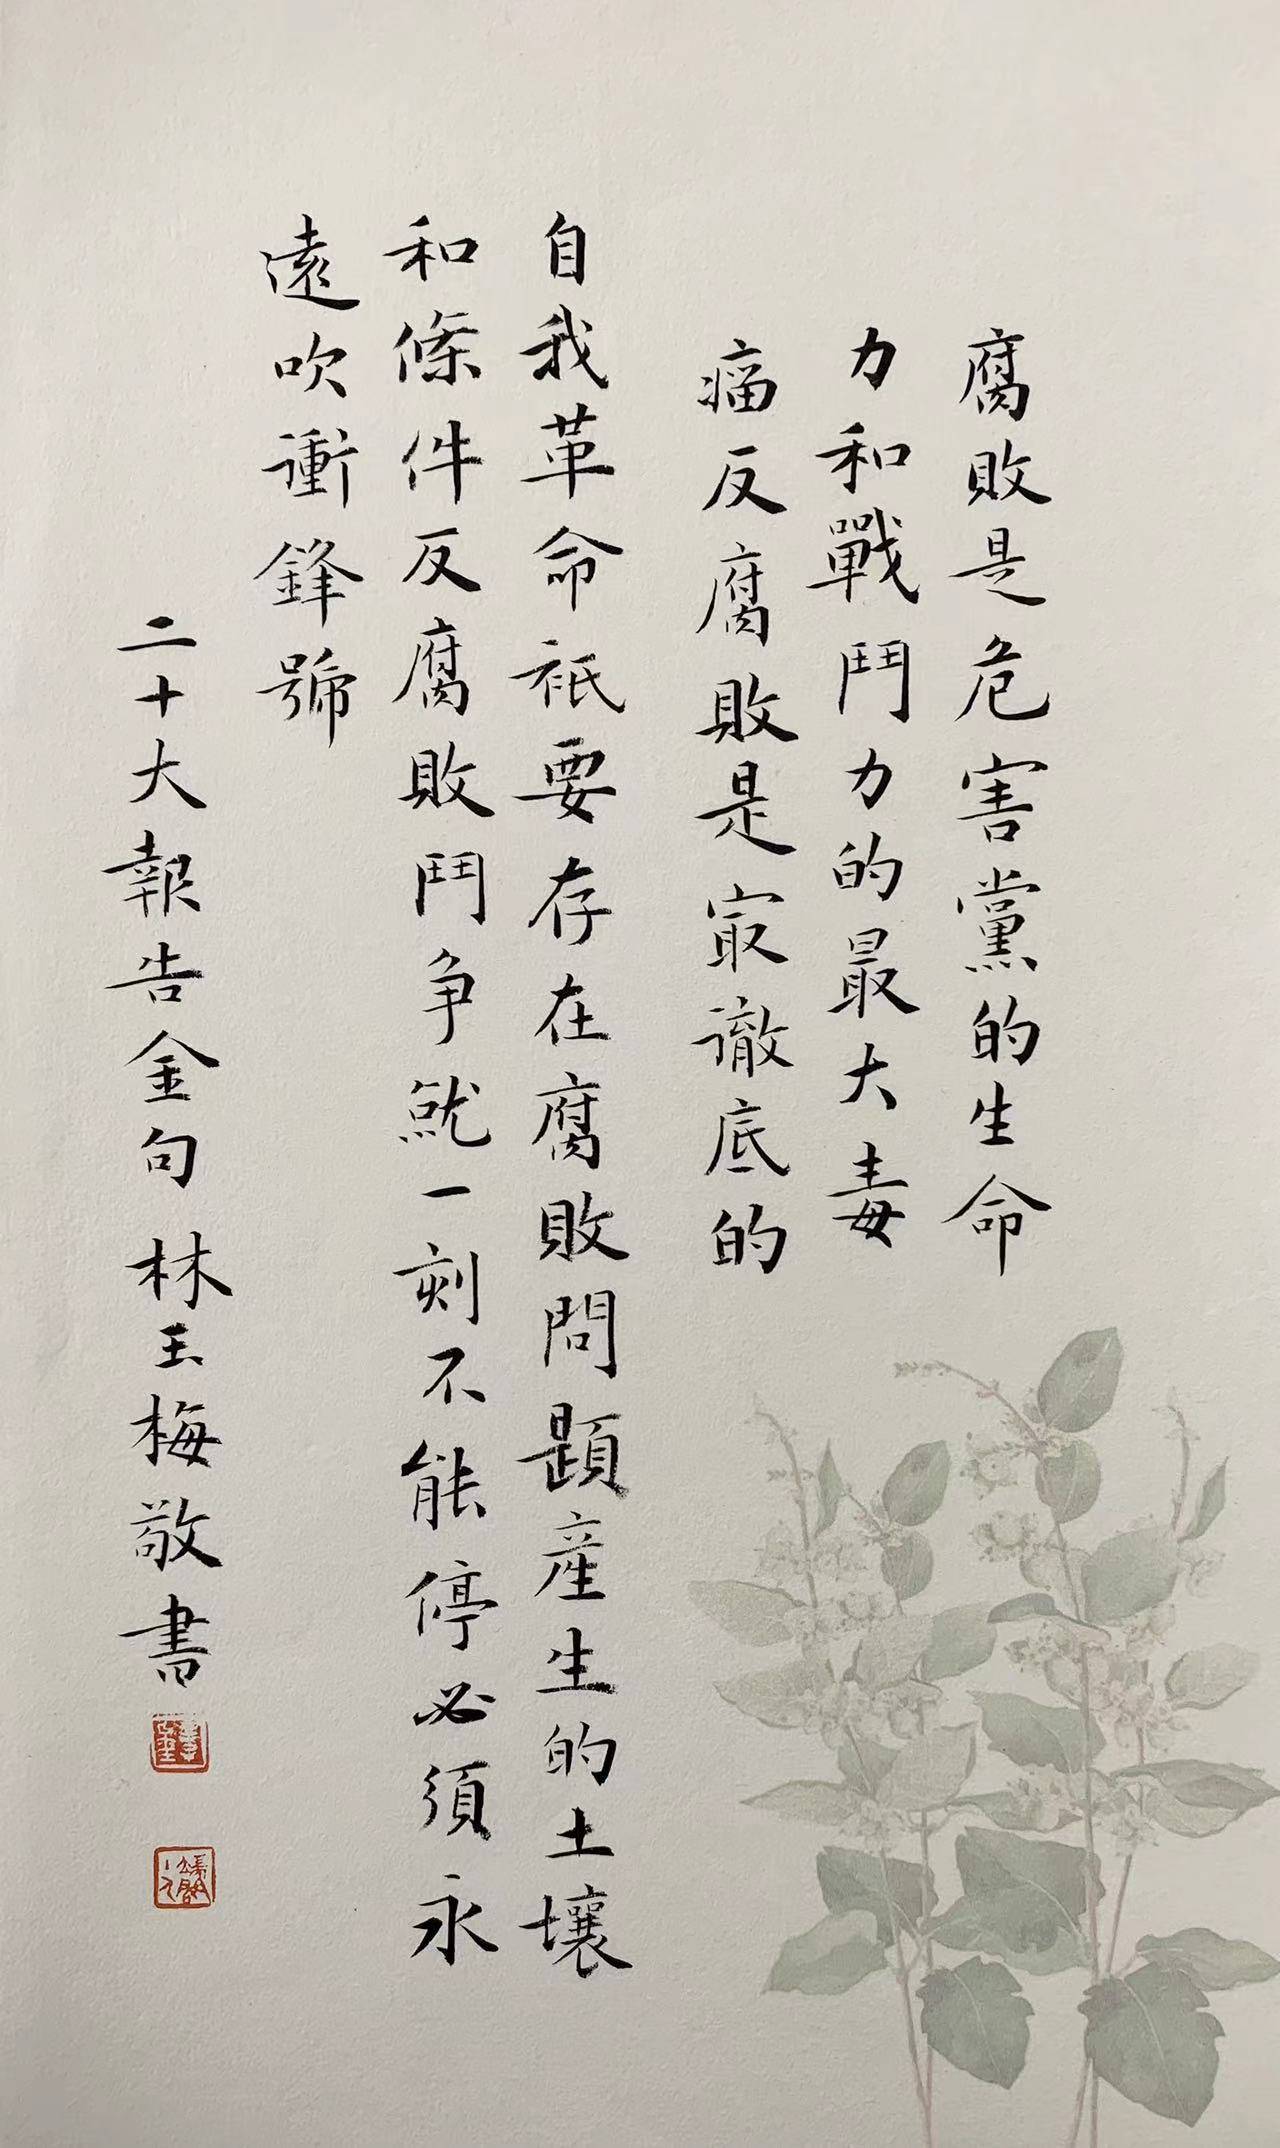 腐敗是危害黨的生命
力和戰鬥力的最大毒
瘤反腐敗是冣徹底的
自我革命祇要存在腐敗問題産生的土壤
和條件反腐敗鬥争就一刻不能停必須永
遠吹衝鋒號
二十大報告金句 林玉梅敬書